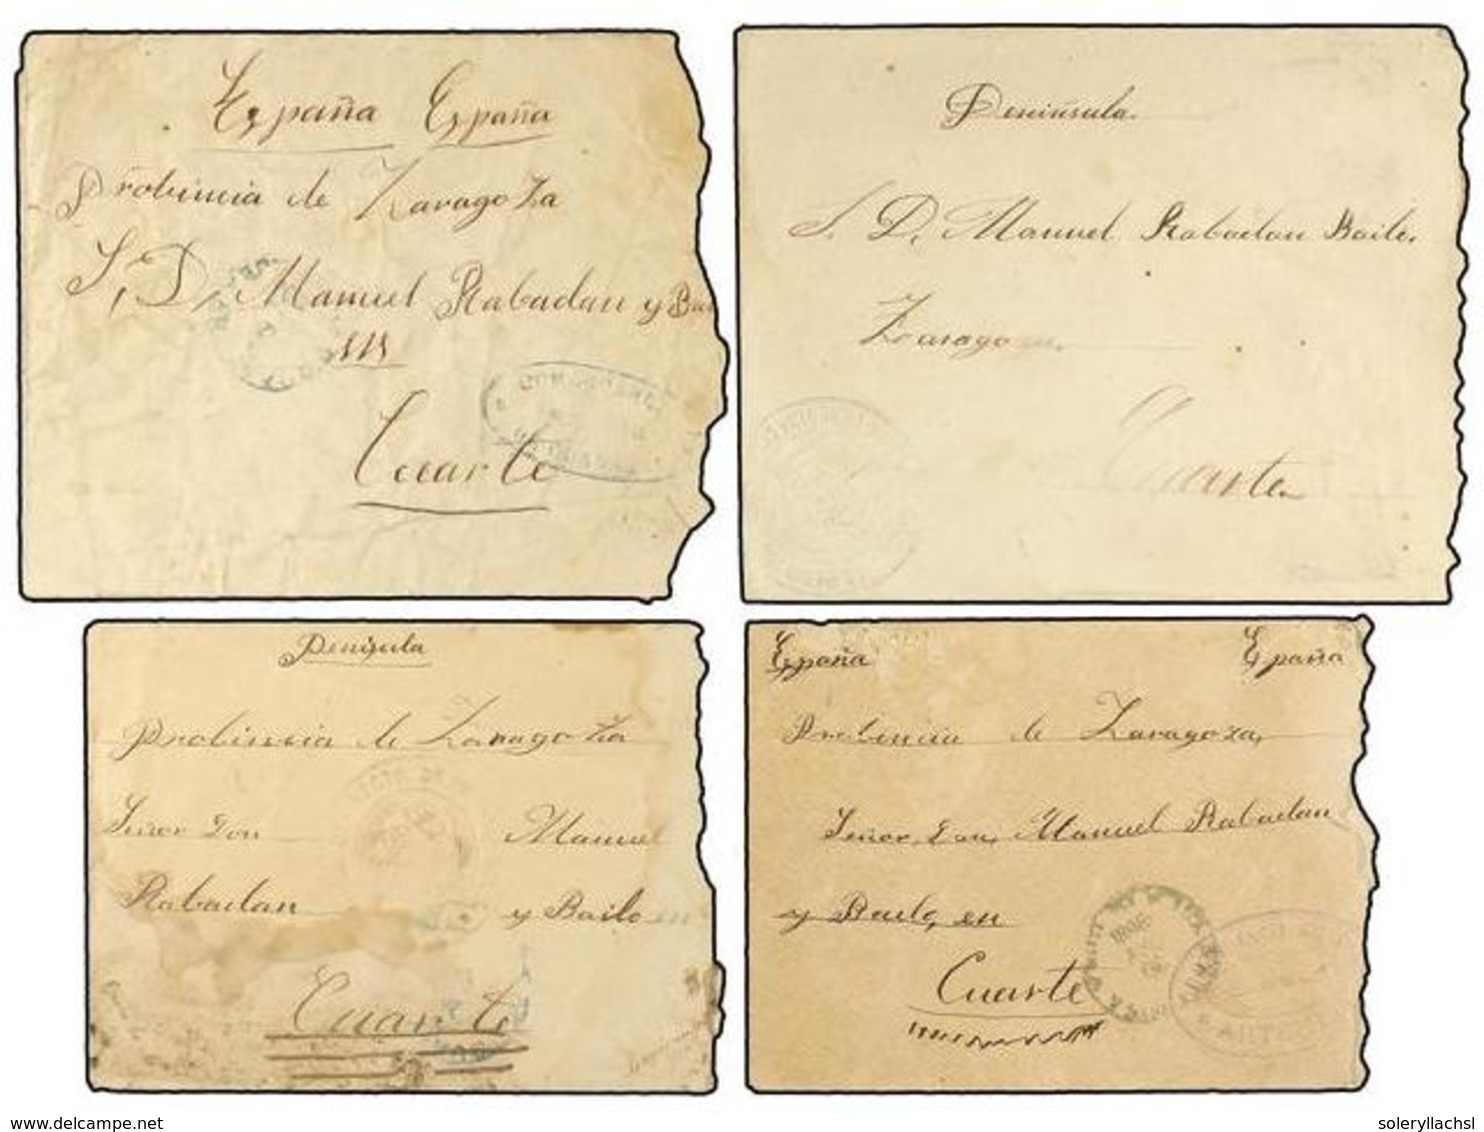 España España
Probincia de Zaragoza
S, D, Manuel Rabadan y Bai
en
Cuarte
Peninsula.
S. D. Manuel Rabadan Baile.
Zarago
Cuarte
Penisula
Probincia de Zaragoza
Señor Don Manuel
Rabadan y Bailo en
Cuarte
España España
Probincia de Zaragoza,
Señor, Don, Manuel Rabadan
y Bailo, en
Cuarte
www.delcampe.net
soleryllachsl